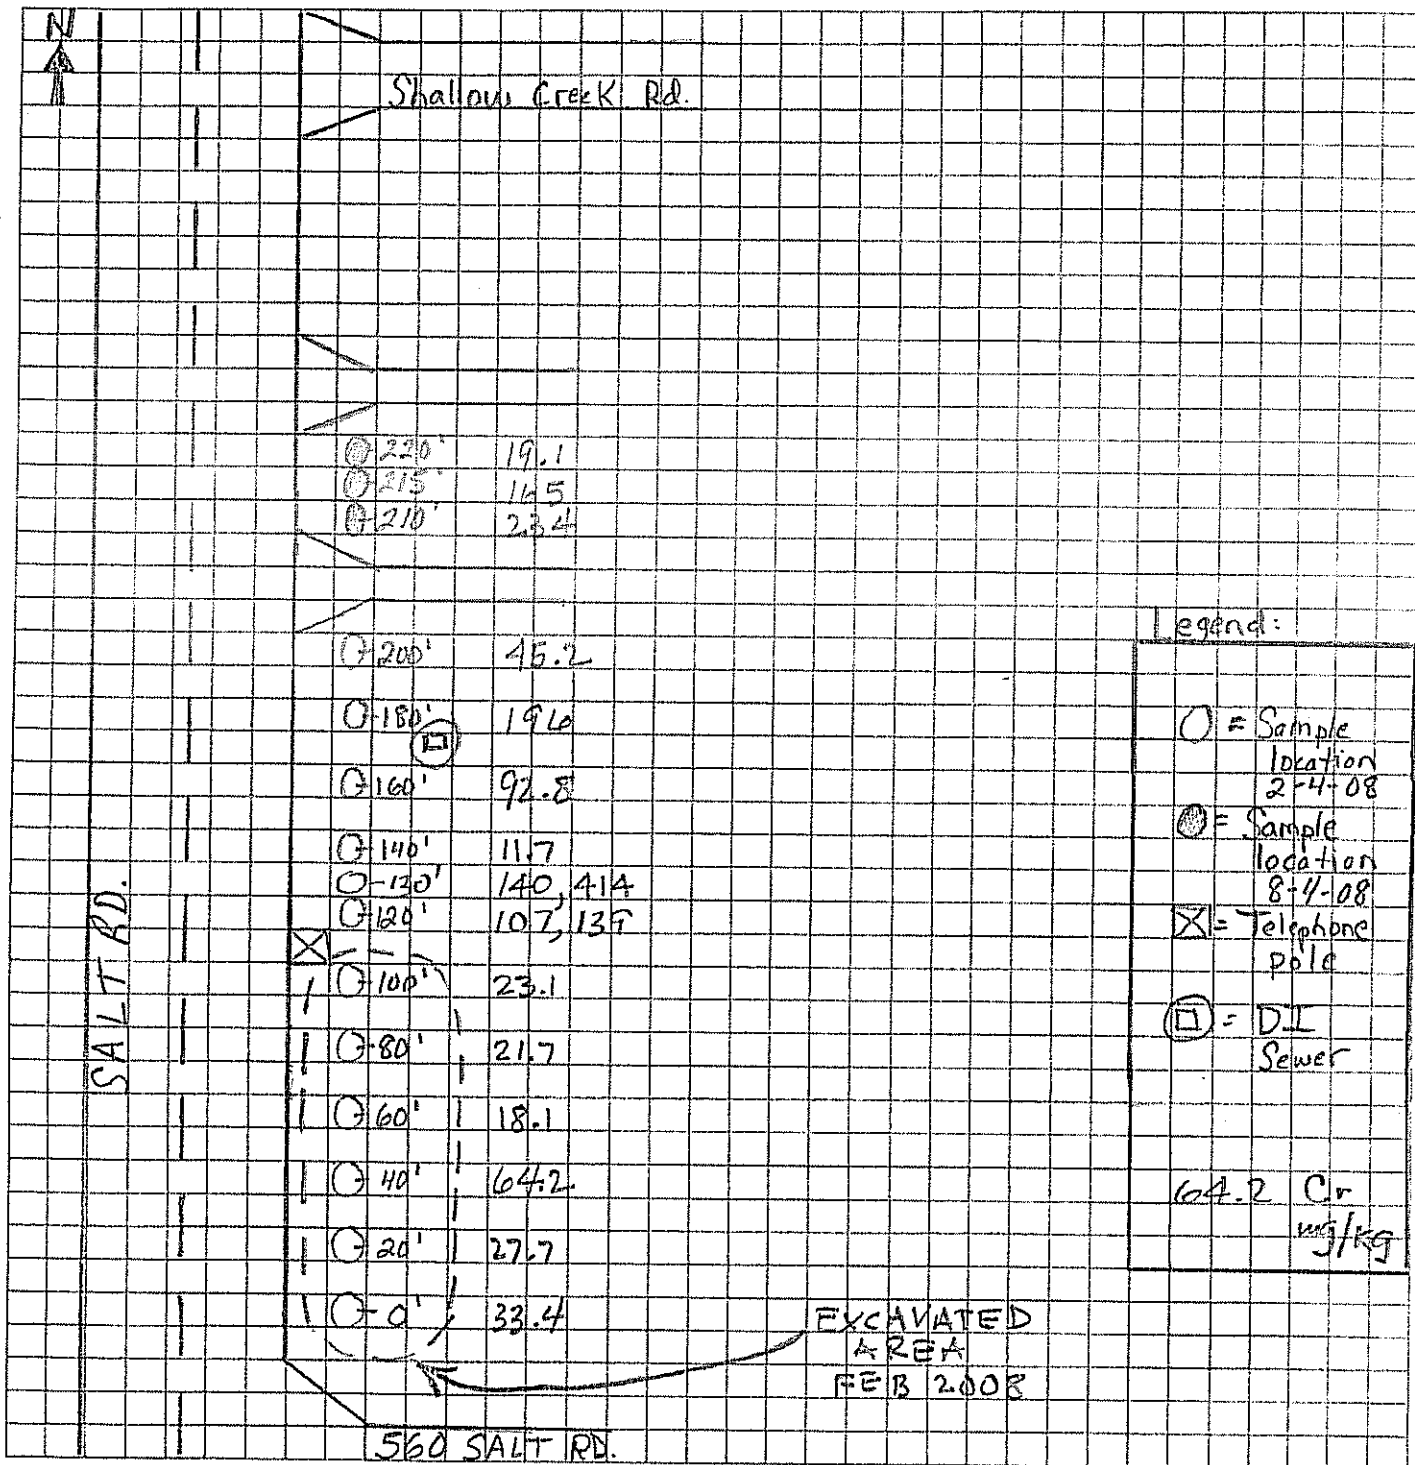 N
Shallow Creek Rd.
220' 19.1
215' 16.5
210' 23.4
200' 45.2
180' 196
160' 92.8
140' 11.7
120' 140, 414
120' 107, 139
100' 23.1
80' 21.7
60' 18.1
40' 64.2
20' 27.7
0' 33.4
SALT RD.
EXCAVATED
AREA
FEB 2008
560 SALT RD.
Legend:
= Sample
location
2-4-08
= Sample
location
8-4-08
= Telephone
pole
= DI
Sewer
64.2 Cr
mg/kg